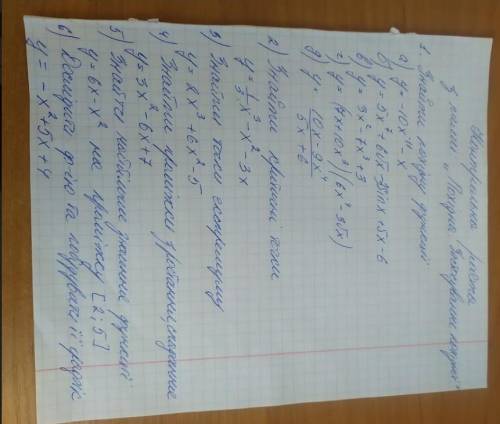 Контрольна робота
З теми „Похідна. Застосування похідної"
1. Знайти похідну функцій
а) y = -10x'' - x
б) y = 9x⁷ + 6√x - 3sin x + 5x - 6
в) y = 3x² - 7x³ + 3
г) y = (4x + 10x³)(6x² - 3√x)
д) y = 10x - 9x⁴ / 5x + 6
2) Знайти критичні точки
y = 1/3 x³ - x² - 3x
3) Знайти точки екстремуму
y = 2x³ + 6x² - 5
4) Знайти проміжки зростання, спадання
y = 3x² - 6x + 7
5) Знайти найбільше значення функції
y = 6x - x² на проміжку [2; 5]
6) Дослідити ф-ію та побудувати її графік
y = -x² + 5x + 4